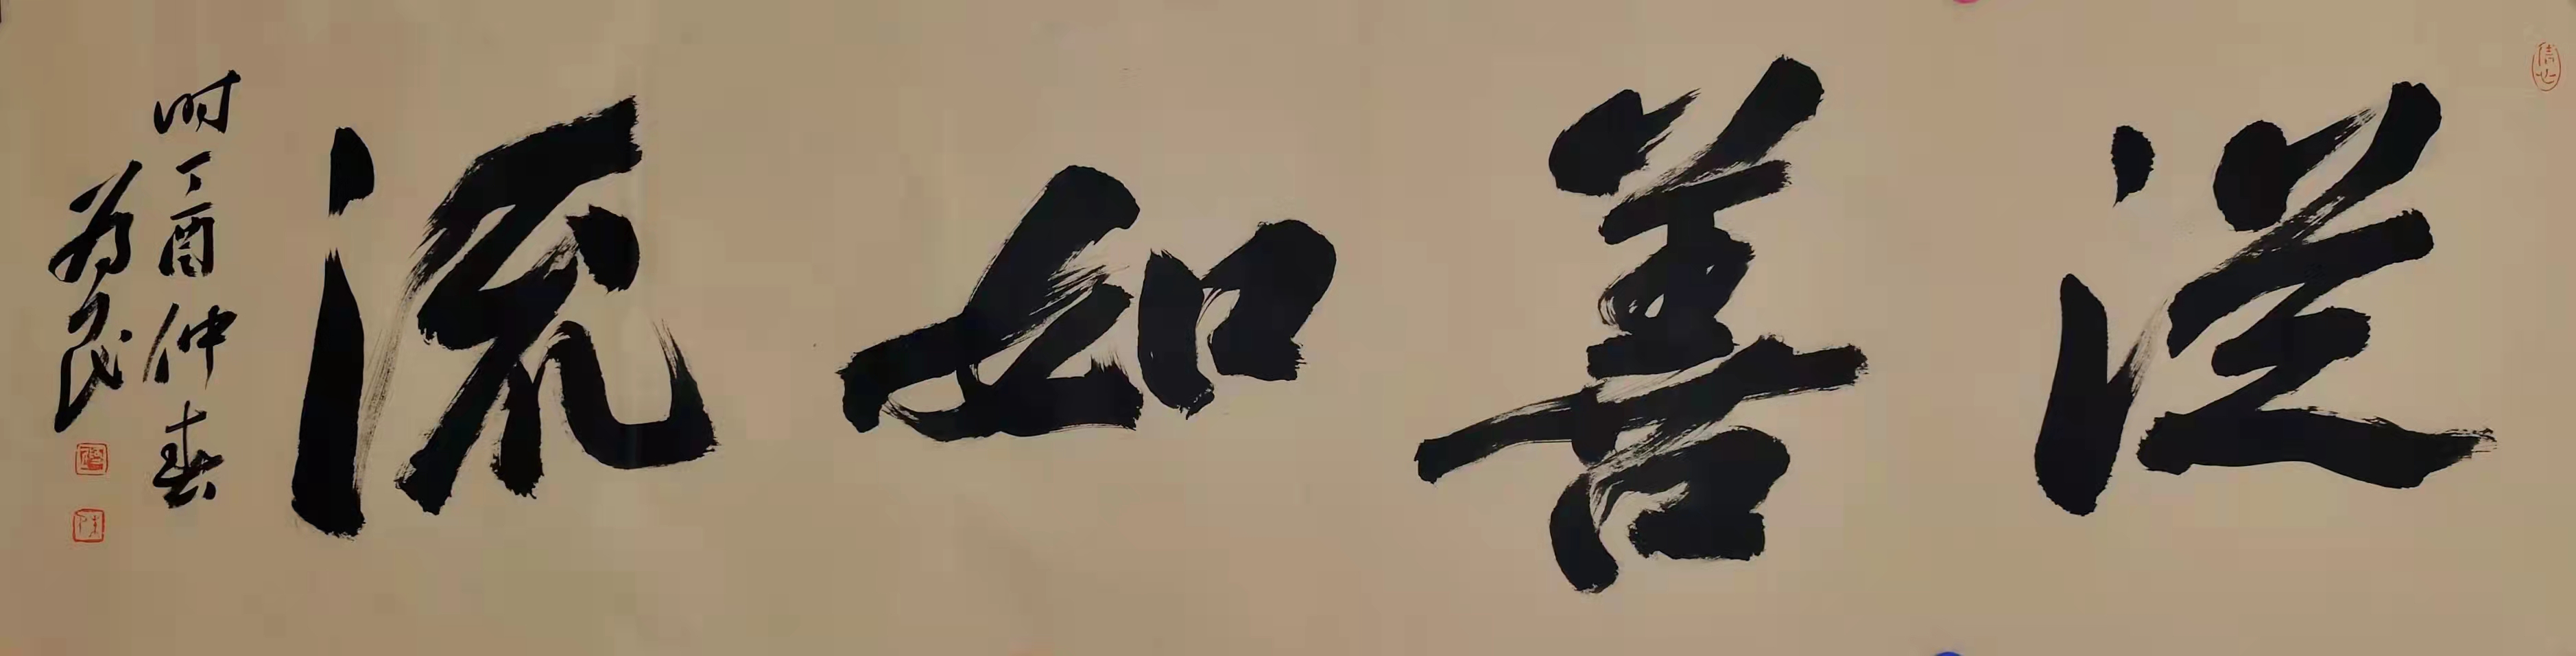 從善如流
时丁酉仲春
为民